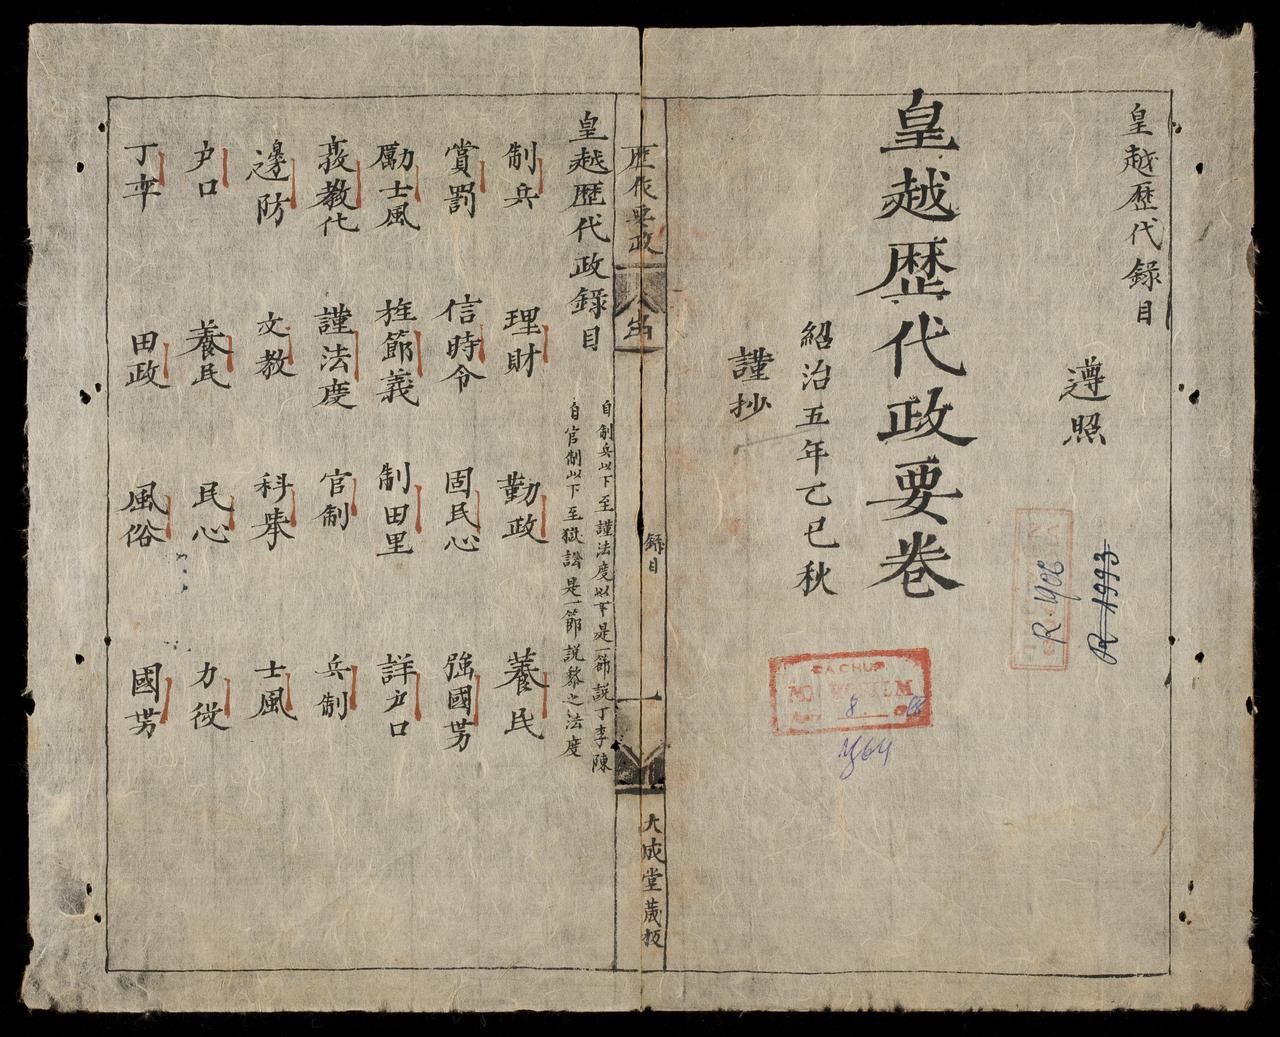 皇越歷代錄目
遵照
皇越歷代政要卷
紹治五年乙巳秋
謹抄
R.1993
R.908
ĐÃ CHỤP
MICROFILM
8
464
歷代要政
錄目
一
大成堂藏板
皇越歷代政錄目
自制兵以下至謹法度以下是一節說丁李陳
自官制以下至獄訟是一節說黎之法度
制兵 理財 勤政 養民
賞罰 信時令 固民心 強國勢
勵士風 旌節義 制田里 詳户口
敦教化 謹法度 官制 兵制
邊防 文教 科舉 士風
户口 養民 民心 力役
丁率 田政 風俗 國勢